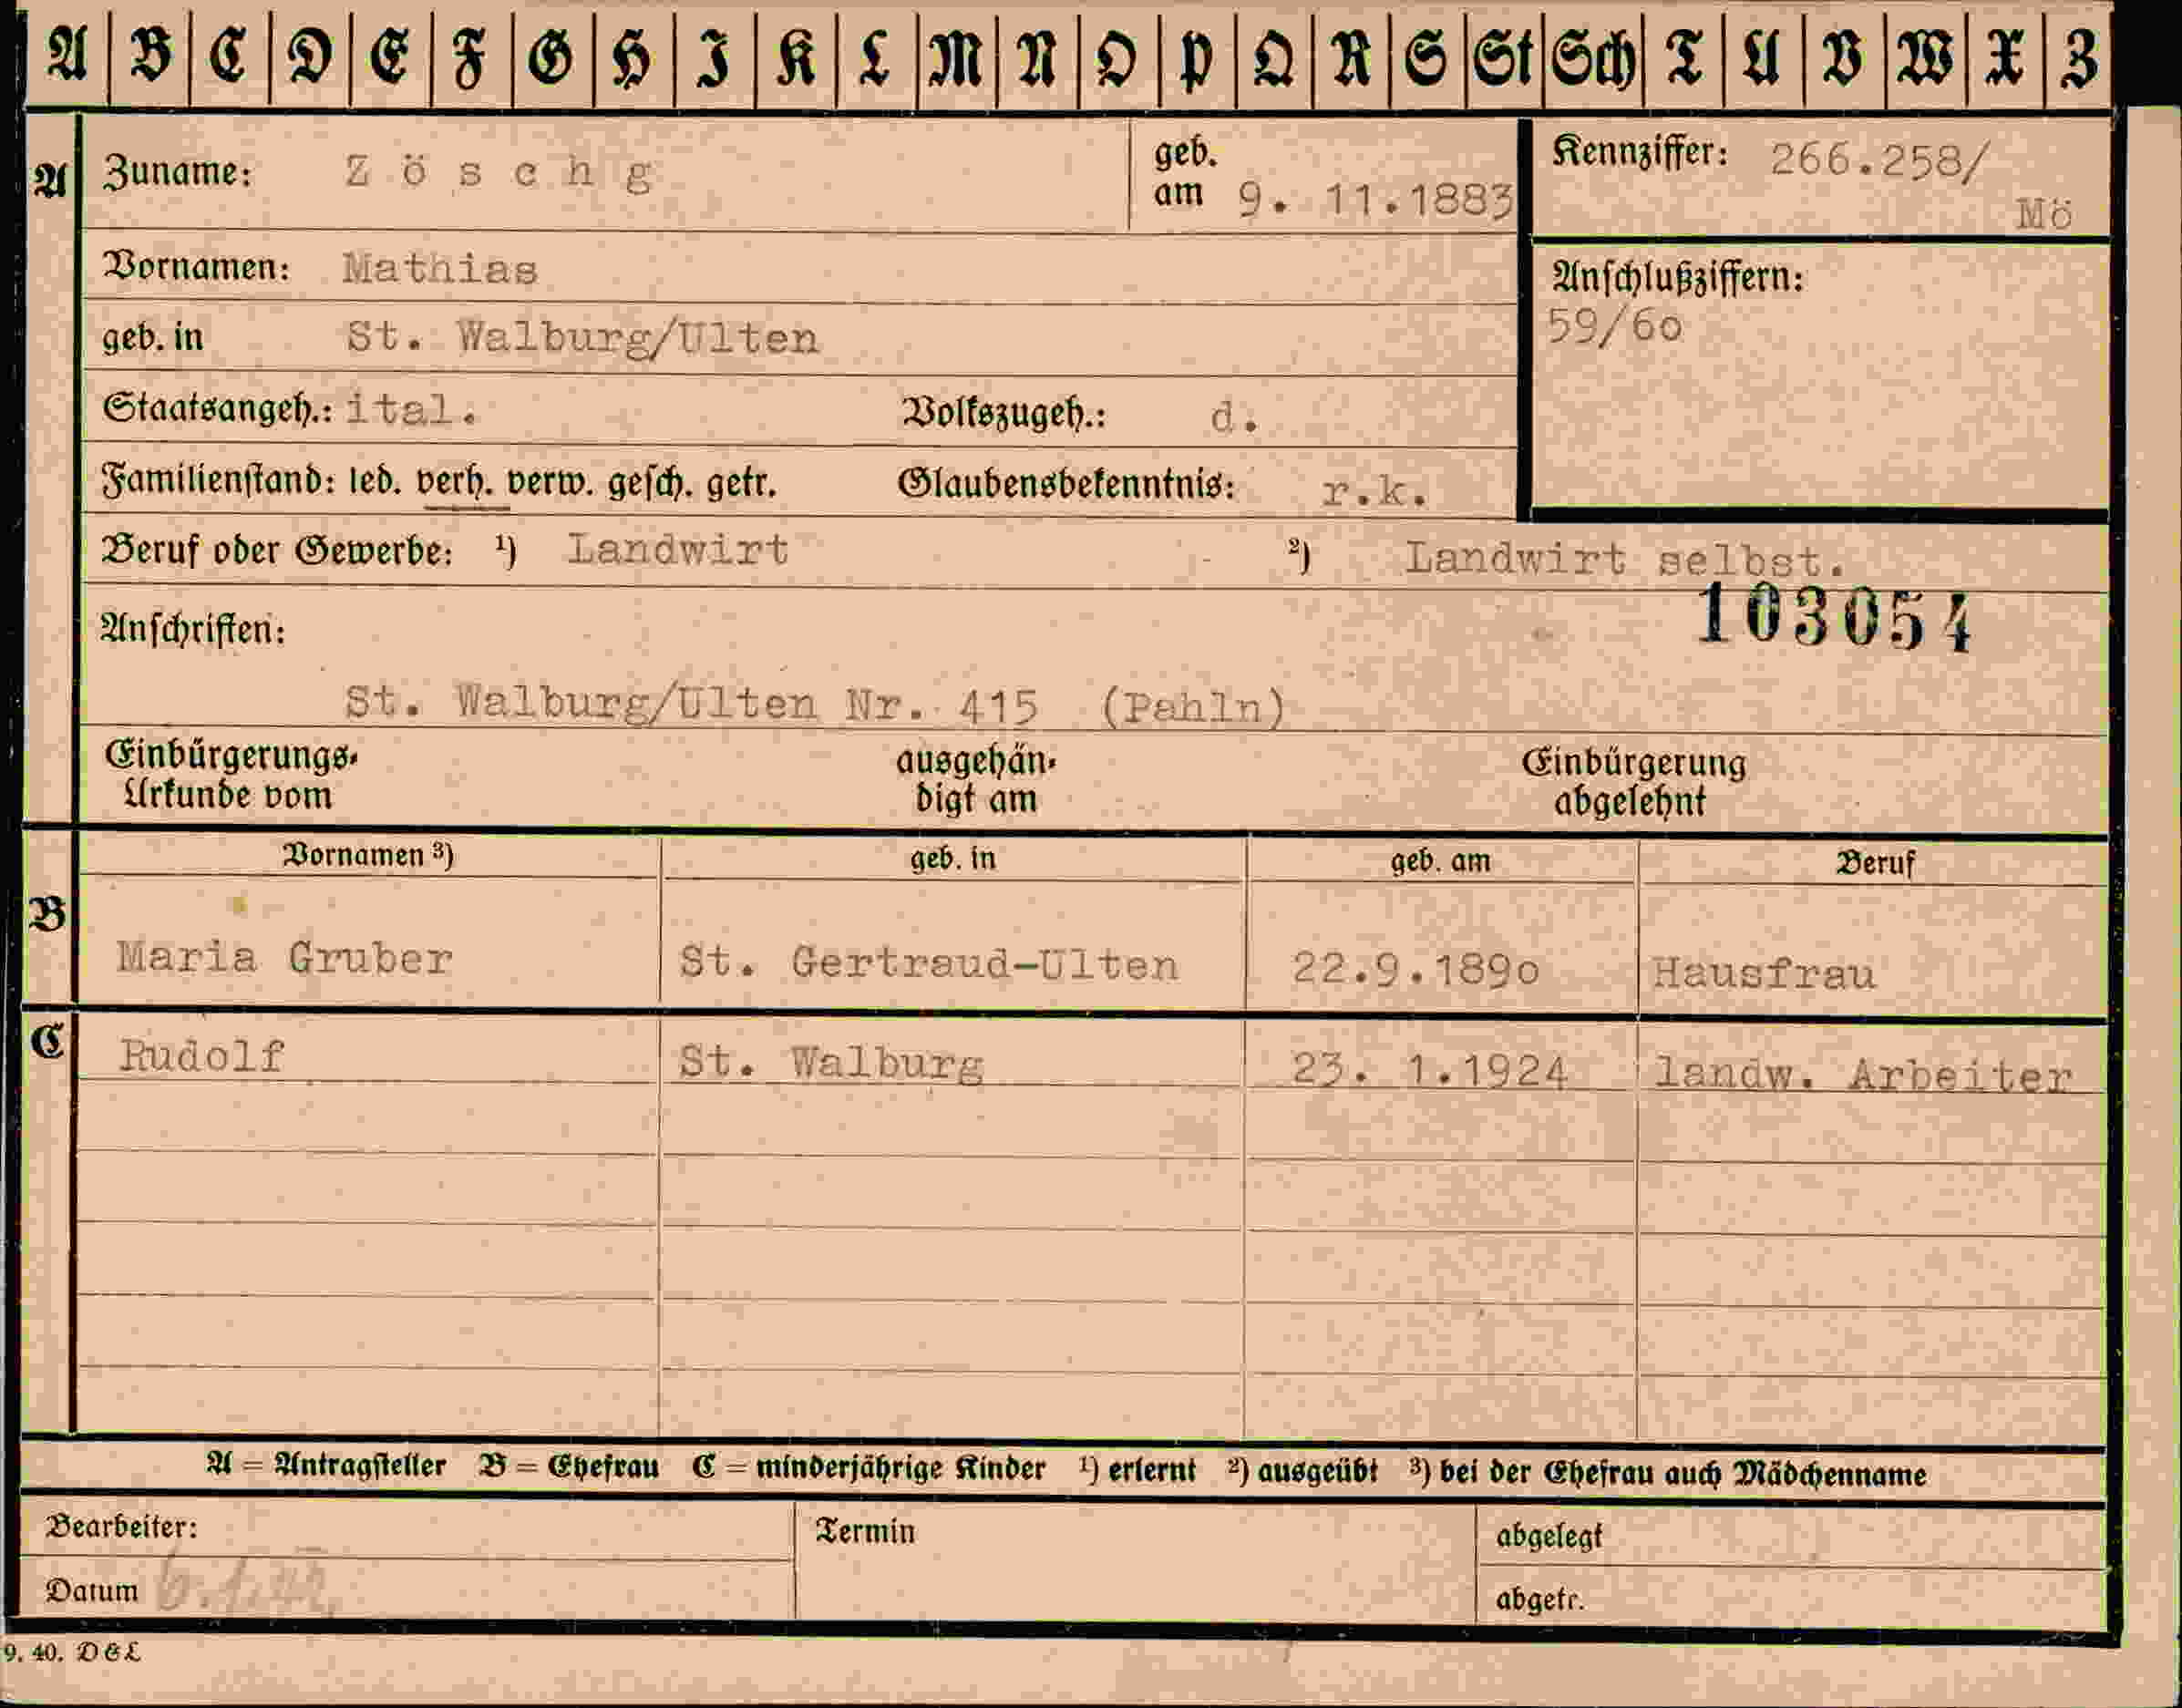 A B C D E F G H I K L M N O P Q R S St Sch T U V W X Z
A Zuname: Zöschg geb. am 9. 11.1883 Kennziffer: 266.258/ Mö
Vornamen: Mathias Anschlußziffern:
geb. in St. Walburg/Ulten 59/60
Staatsangeh.: ital. Volkszugeh.: d.
Familienstand: led. verh. verw. gesch. getr. Glaubensbekenntnis: r.k.
Beruf oder Gewerbe: ¹) Landwirt ²) Landwirt selbst.
Anschriften: 103054
St. Walburg/Ulten Nr. 415 (Pahln)
Einbürgerungs- ausgehän- Einbürgerung
Urkunde vom digt am abgelehnt
Vornamen ³) geb. in geb. am Beruf
B
Maria Gruber St. Gertraud-Ulten 22.9.1890 Hausfrau
C Rudolf St. Walburg 23. 1.1924 landw. Arbeiter
A = Antragsteller B = Ehefrau C = minderjährige Kinder ¹) erlernt ²) ausgeübt ³) bei der Ehefrau auch Mädchenname
Bearbeiter: Termin abgelegt
Datum 6.1.42 abgetr.
9. 40. D&L